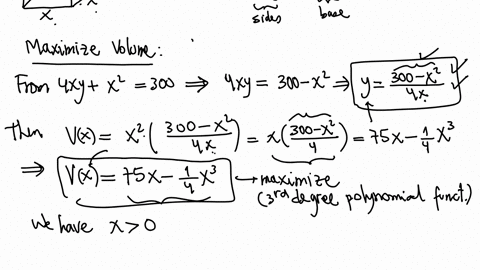 x. x.
sides base
Maximize Volume:
From 4xy + x² = 300 ⇒ 4xy = 300 - x² ⇒ y = (300 - x²)/4x
Then V(x) = x² ( (300 - x²)/4x ) = x ( (300 - x²)/4 ) = 75x - 1/4 x³
⇒ V(x) = 75x - 1/4 x³ → maximize
(3rd degree polynomial funct.)
We have x > 0